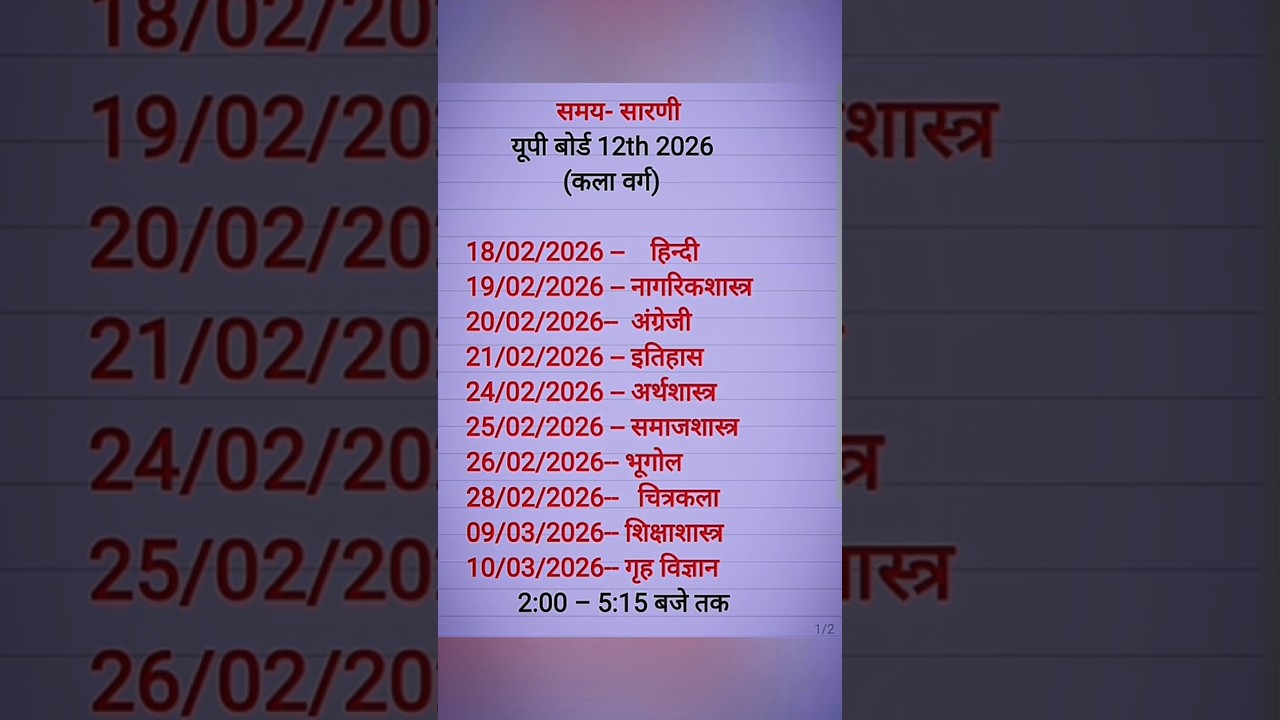 समय- सारणी
यूपी बोर्ड 12th 2026
(कला वर्ग)
18/02/2026 – हिन्दी
19/02/2026 – नागरिकशास्त्र
20/02/2026– अंग्रेजी
21/02/2026 – इतिहास
24/02/2026 – अर्थशास्त्र
25/02/2026 – समाजशास्त्र
26/02/2026-- भूगोल
28/02/2026-- चित्रकला
09/03/2026-- शिक्षाशास्त्र
10/03/2026-- गृह विज्ञान
2:00 – 5:15 बजे तक
1/2